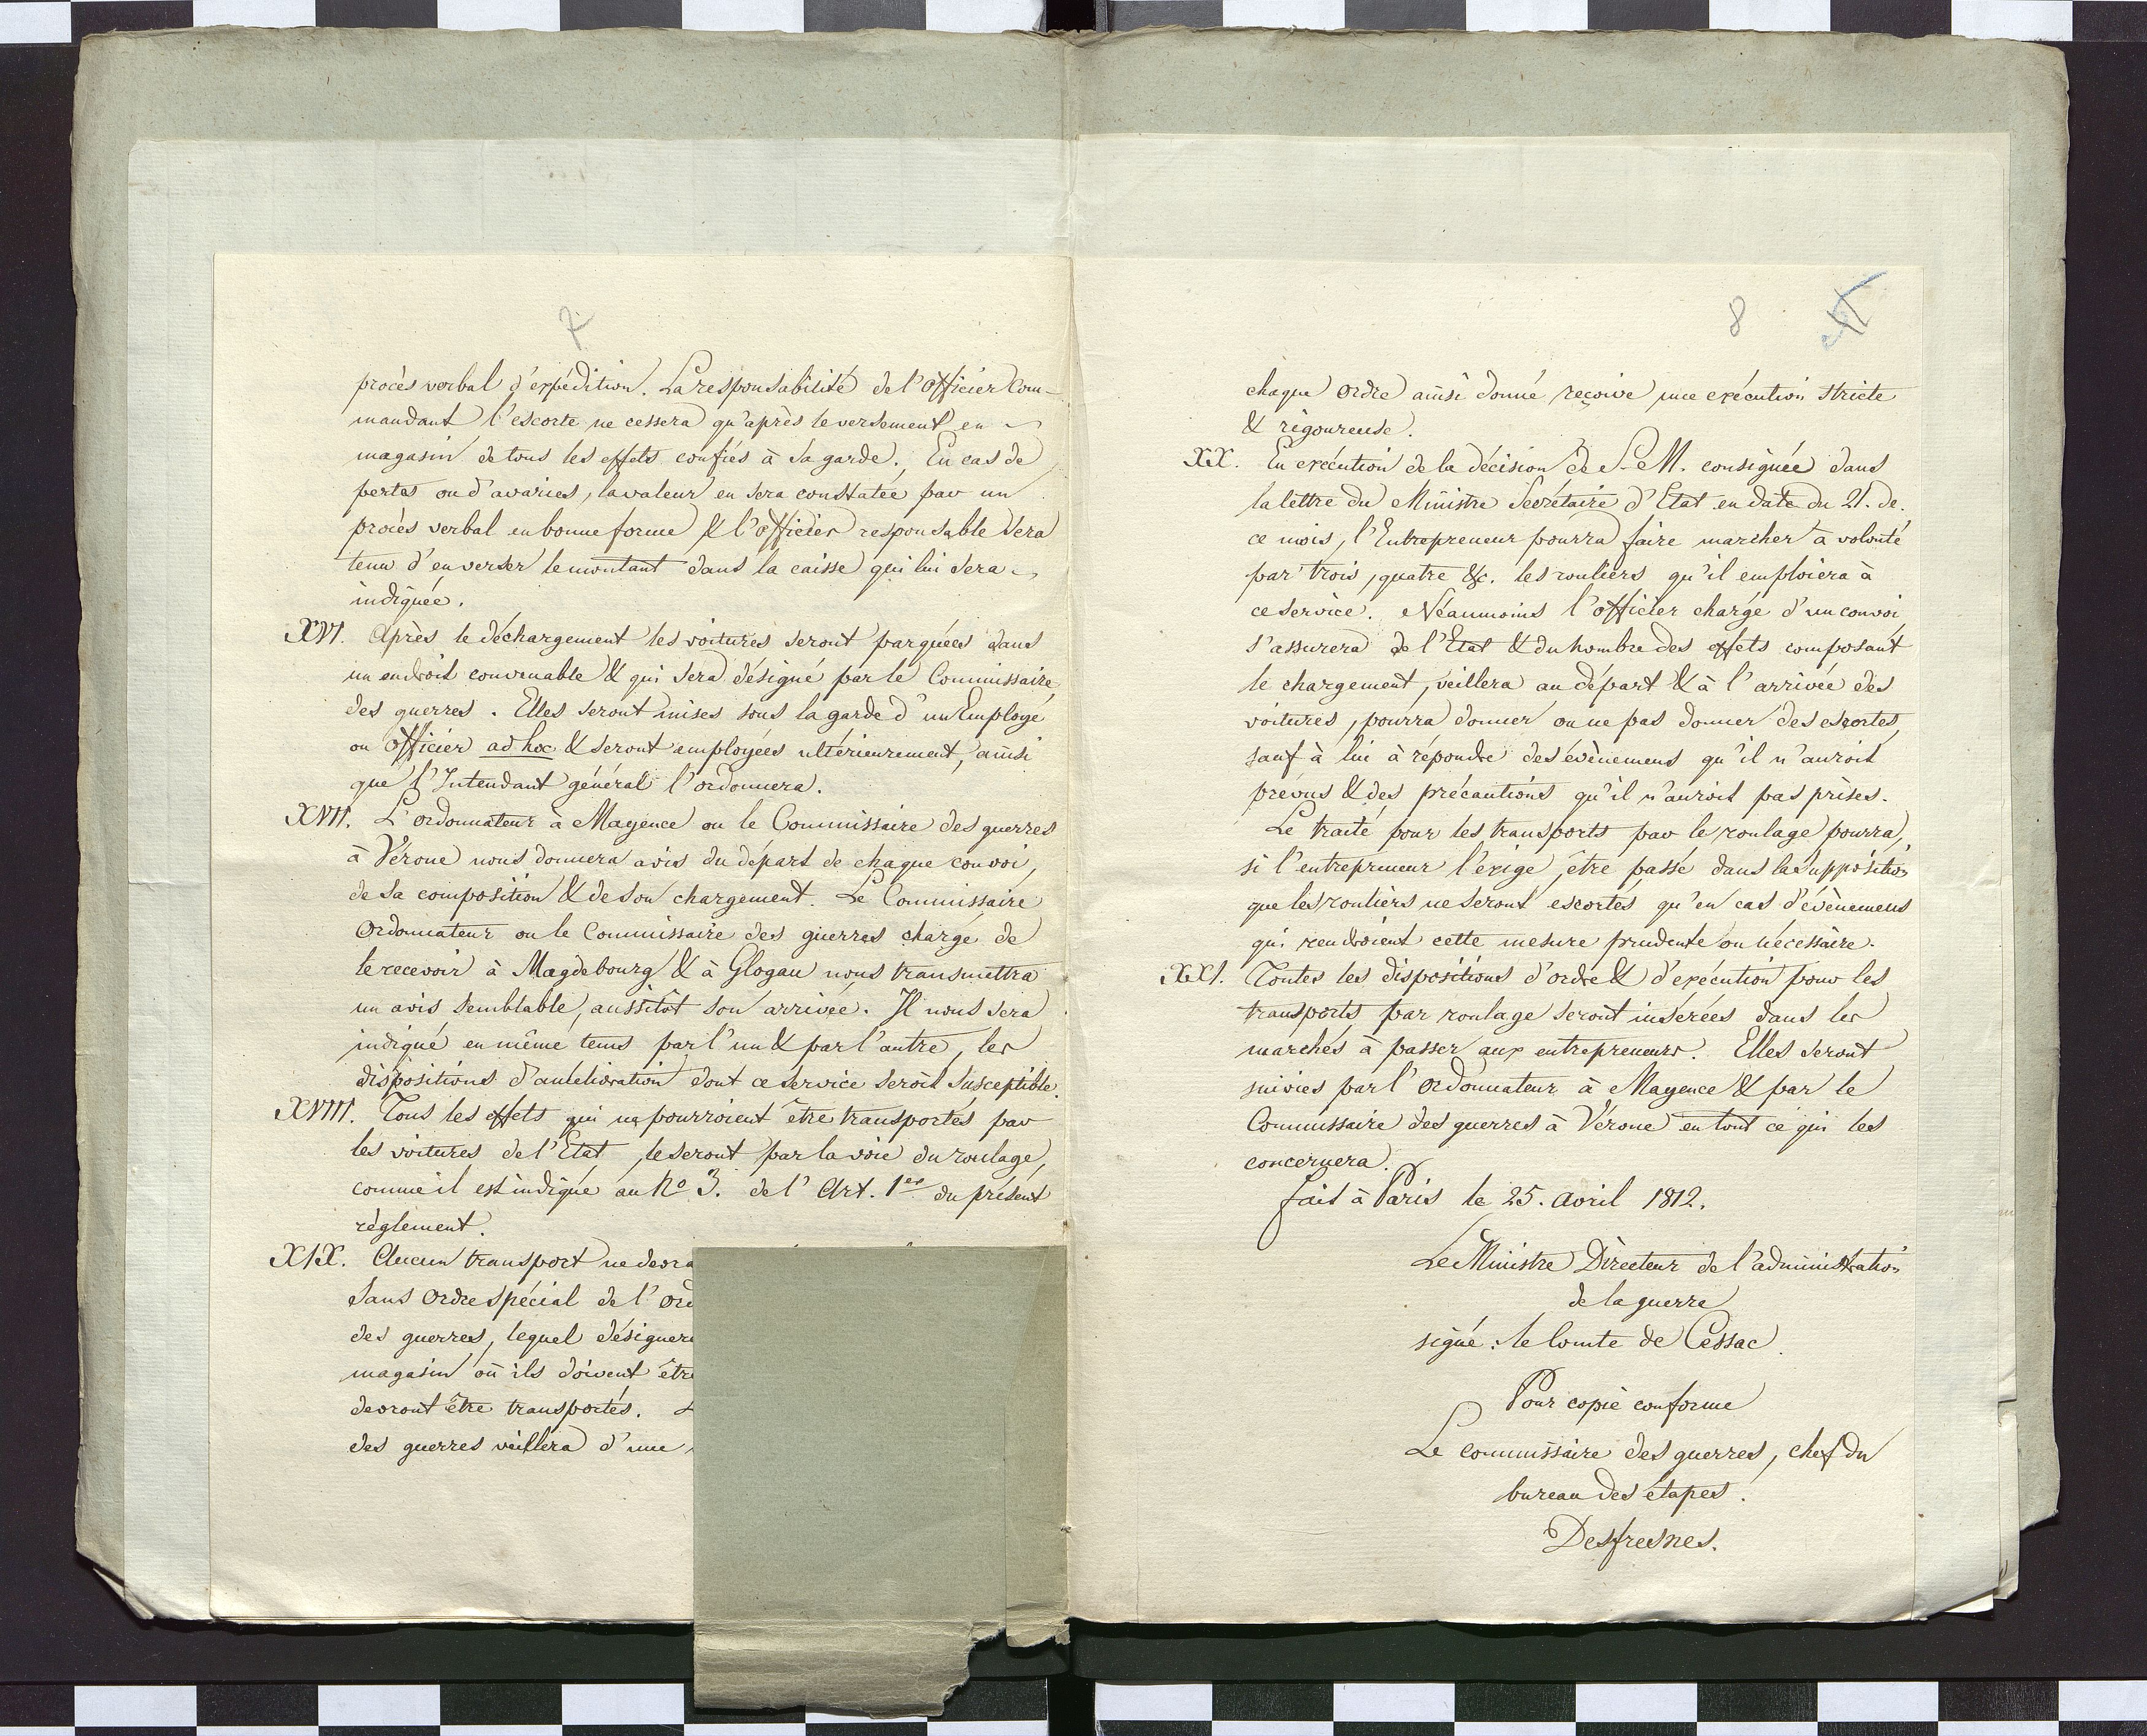 7
procès verbal d'expédition. La responsabilité de l'officier Com-
mandant l'escorte ne cessera qu'après le versement en
magasin de tous les effets confiés à sa garde. En cas de
pertes ou d'avaries, la valeur en sera constatée par un
procès verbal en bonne forme & l'officier responsable sera
tenu d'en verser le montant dans la caisse qui lui sera
indiquée.
XVI. Après le déchargement les voitures seront parquées dans
un endroit convenable & qui sera désigné par le Commissaire
des guerres. Elles seront mises sous la garde d'un Employé
ou officier ad hoc & seront employées ultérieurement, ainsi
que l'Intendant général l'ordonnera.
XVII. L'ordonnateur à Mayence ou le Commissaire des guerres
à Vérone nous donnera avis du départ de chaque convoi,
de sa composition & de son chargement. Le Commissaire
Ordonnateur ou le Commissaire des guerres chargé de
le recevoir à Magdebourg & à Glogau nous transmettra
un avis semblable, aussitôt son arrivée. Il nous sera
indiqué en même tems par l'un & par l'autre, les
dispositions d'amélioration dont ce service seroit susceptible.
XVIII. Tous les effets qui ne pourroient être transportés par
les voitures de l'Etat, le seront par la voie du roulage,
comme il est indiqué au No 3. de l'Art. 1er du présent
règlement.
XIX. Aucun transport ne devra
sans ordre spécial de l'ord
des guerres, lequel désignera
magasin où ils doivent être
devront être transportés. L
des guerres veillera d'une
8
chaque ordre ainsi donné reçoive une exécution stricte
& rigoureuse.
XX. En exécution de la décision de S. M. consignée dans
la lettre du Ministre Secrétaire d'Etat en date du 21. de
ce mois, l'Entrepreneur pourra faire marcher à volonté
par trois, quatre &c. les rouliers qu'il emploiera à
ce service. Néanmoins l'officier chargé d'un convoi
s'assurera de l'Etat & du nombre des effets composant
le chargement, veillera au départ & à l'arrivée des
voitures, pourra donner ou ne pas donner des escortes,
sauf à lui à répondre des évènemens qu'il n'auroit
prévus & des précautions qu'il n'auroit pas prises.
Le traité pour les transports par le roulage pourra,
si l'entrepreneur l'exige, être passé dans la supposition
que les rouliers ne seront escortés qu'en cas d'évènemens
qui rendroient cette mesure prudente ou nécessaire.
XXI. Toutes les dispositions d'ordre & d'exécution pour les
transports par roulage seront insérées dans les
marchés à passer aux entrepreneurs. Elles seront
suivies par l'ordonnateur à Mayence & par le
Commissaire des guerres à Vérone en tout ce qui les
concernera.
fait à Paris le 25. avril 1812.
Le Ministre Directeur de l'administration
de la guerre
signé: le Comte de Cessac.
Pour copie conforme
Le commissaire des guerres, chef du
bureau des étapes.
Desfresnes.